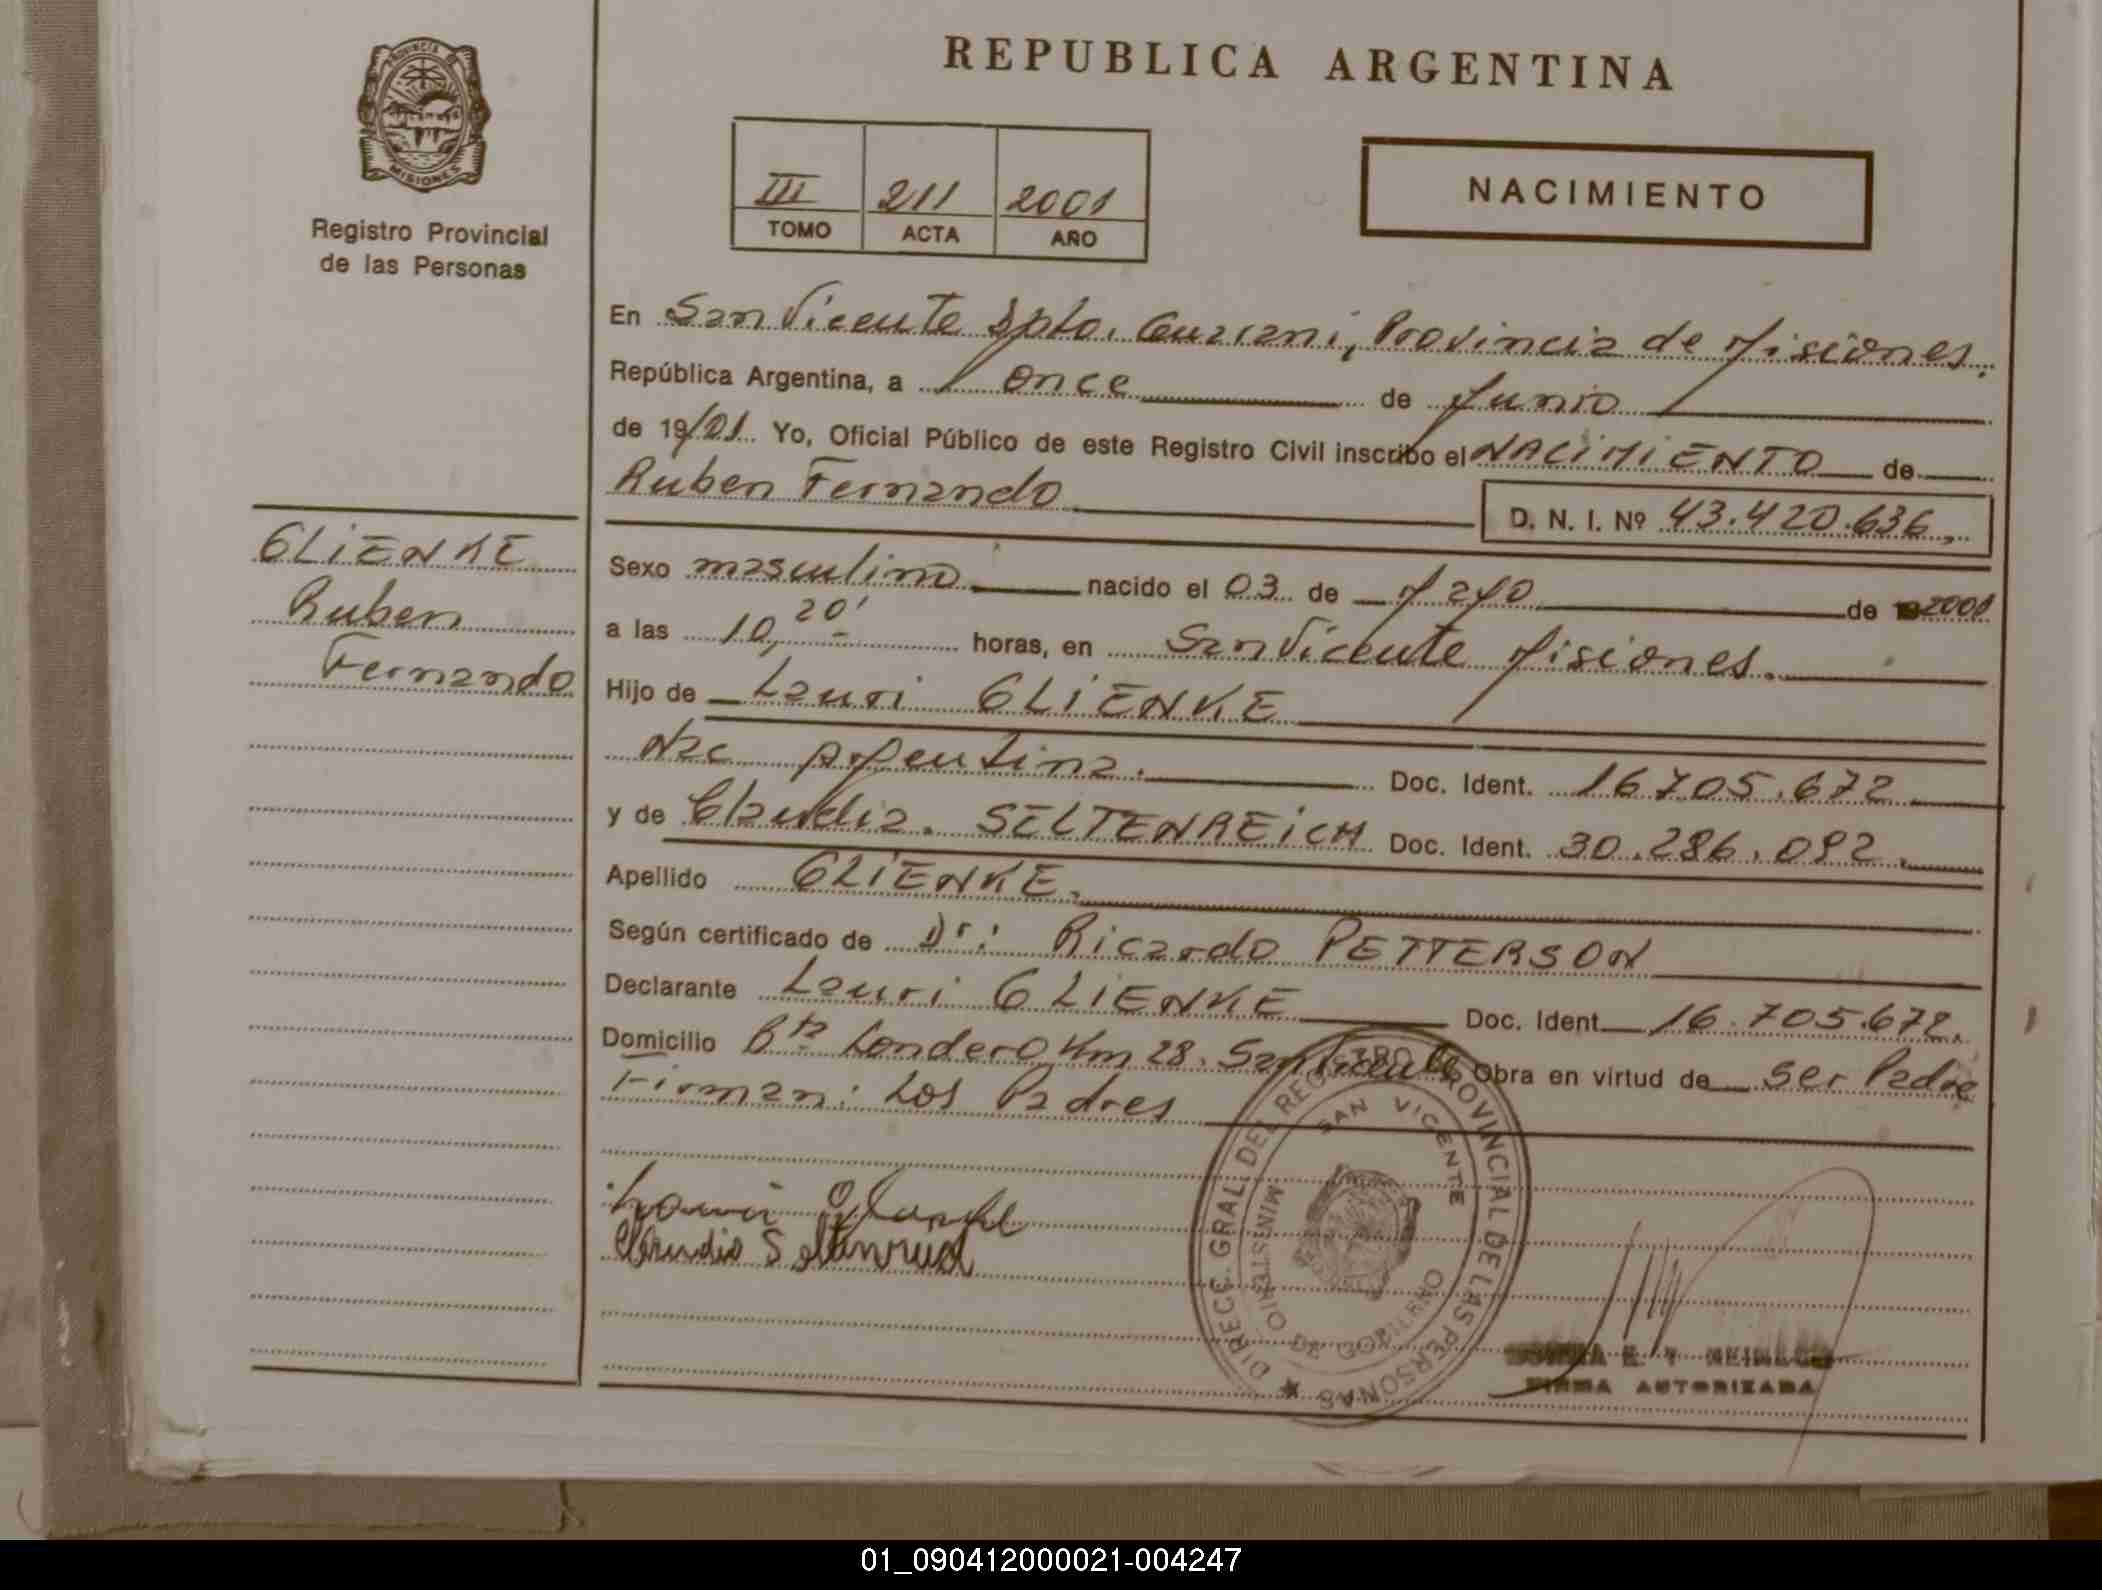 REPUBLICA ARGENTINA
PROVINCIA DE
MISIONES
Registro Provincial
de las Personas
III 211 2001
TOMO ACTA AÑO
NACIMIENTO
En San Vicente Dpto. Guarani, Provincia de Misiones.
República Argentina, a once de Junio
de 19/01 Yo, Oficial Público de este Registro Civil inscribo el NACIMIENTO de
Ruben Fernando
D. N. I. Nº 43.420.636,
GLIENKE
Ruben
Fernando
Sexo masculino nacido el 03 de Mayo de 2001
a las 10,20' horas, en San Vicente Misiones.
Hijo de Lauri GLIENKE
Nac Argentina. Doc. Ident. 16.705.672.
y de Claudia. SELTENREICH Doc. Ident. 30.286.092.
Apellido GLIENKE.
Según certificado de Dr: Ricardo PETTERSON
Declarante Lauri GLIENKE Doc. Ident 16.705.672.
Domicilio Bta Londero Km 28. San Vicente Obra en virtud de ser Padre
Firman: Los Padres
DIRECC. GRAL. DEL REGISTRO PROVINCIAL DE LAS PERSONAS
SAN VICENTE
MINISTERIO DE GOBIERNO
FIRMA AUTORIZADA
01_090412000021-004247